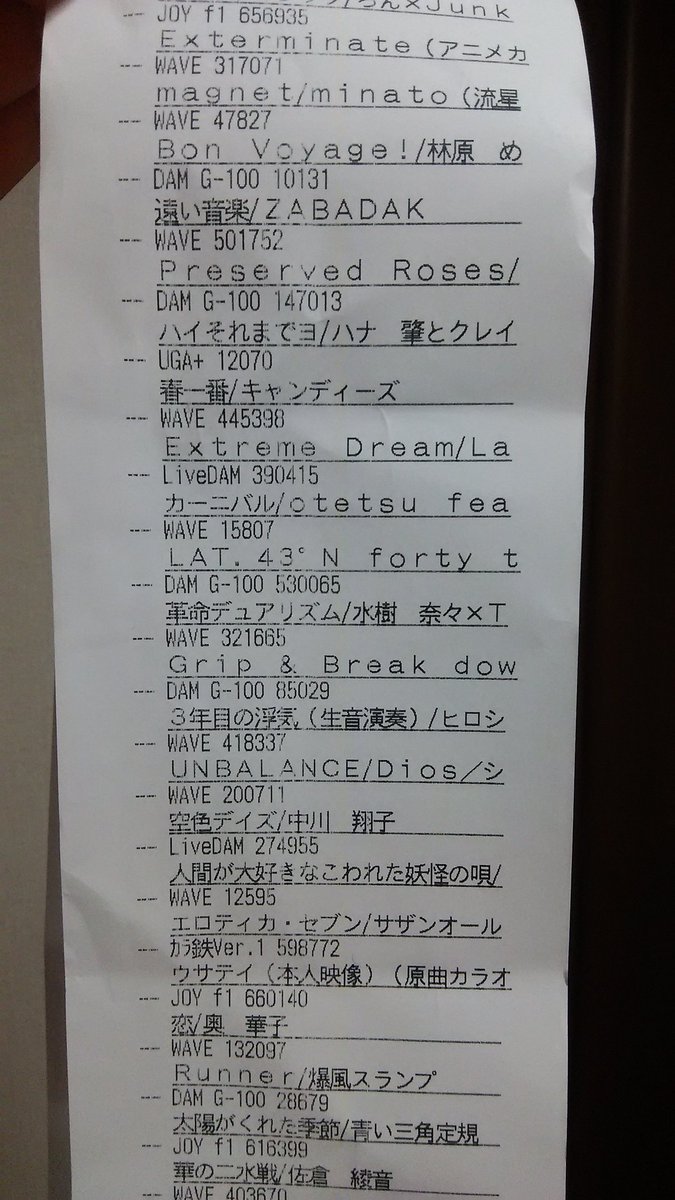 ×Junk
--- JOY f1 656935
Exterminate(アニメカ
--- WAVE 317071
magnet/minato(流星
--- WAVE 47827
Bon Voyage!/林原 め
--- DAM G-100 10131
遠い音楽/ZABADAK
--- WAVE 501752
Preserved Roses/
--- DAM G-100 147013
ハイそれまでヨ/ハナ 肇とクレイ
--- UGA+ 12070
春一番/キャンディーズ
--- WAVE 445398
Extreme Dream/La
--- LiveDAM 390415
カーニバル/otetsu fea
--- WAVE 15807
LAT. 43°N forty t
--- DAM G-100 530065
革命デュアリズム/水樹 奈々×T
--- WAVE 321665
Grip & Break dow
--- DAM G-100 85029
3年目の浮気(生音演奏)/ヒロシ
--- WAVE 418337
UNBALANCE/Dios/シ
--- WAVE 200711
空色デイズ/中川 翔子
--- LiveDAM 274955
人間が大好きなこわれた妖怪の唄/
--- WAVE 12595
エロティカ・セブン/サザンオール
--- カラ鉄Ver.1 598772
ウサテイ(本人映像)(原曲カラオ
--- JOY f1 660140
恋/奥 華子
--- WAVE 132097
Runner/爆風スランプ
--- DAM G-100 28679
太陽がくれた季節/青い三角定規
--- JOY f1 616399
華の二水戦/佐倉 綾音
--- WAVE 403670